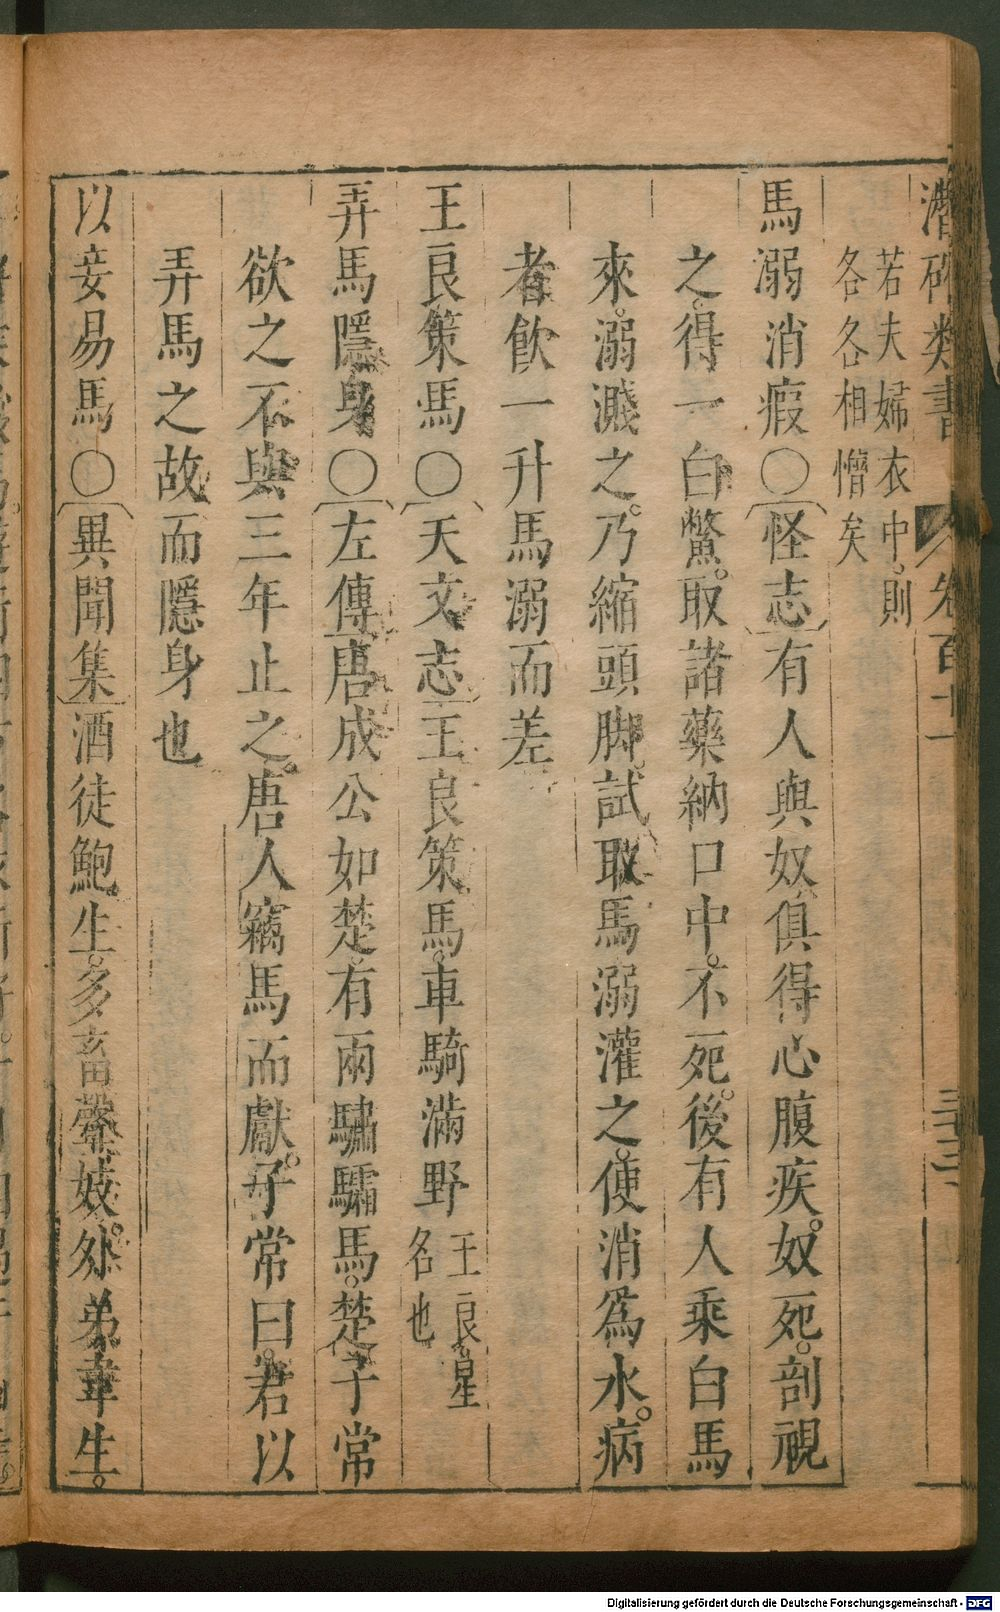 潛確類書 卷百十一 三十三
若夫婦衣中則
各各相憎矣
馬溺消瘕○〔怪志〕有人與奴俱得心腹疾。奴死。剖視
之。得一白鱉。取諸藥納口中。不死。後有人乘白馬
來。溺濺之。乃縮頭脚。試取馬溺灌之。便消爲水。病
者飲一升馬溺而差
王良策馬○〔天文志〕王良策馬。車騎滿野 王良星名也
弄馬隱身○〔左傳〕唐成公如楚。有兩驌驦馬。楚子常
欲之不與三年止之。唐人竊馬而獻。子常曰。君以
弄馬之故。而隱身也
以妾易馬○〔異聞集〕酒徒鮑生。多畜聲妓。外弟韋生。
Digitalisierung gefördert durch die Deutsche Forschungsgemeinschaft - DFG